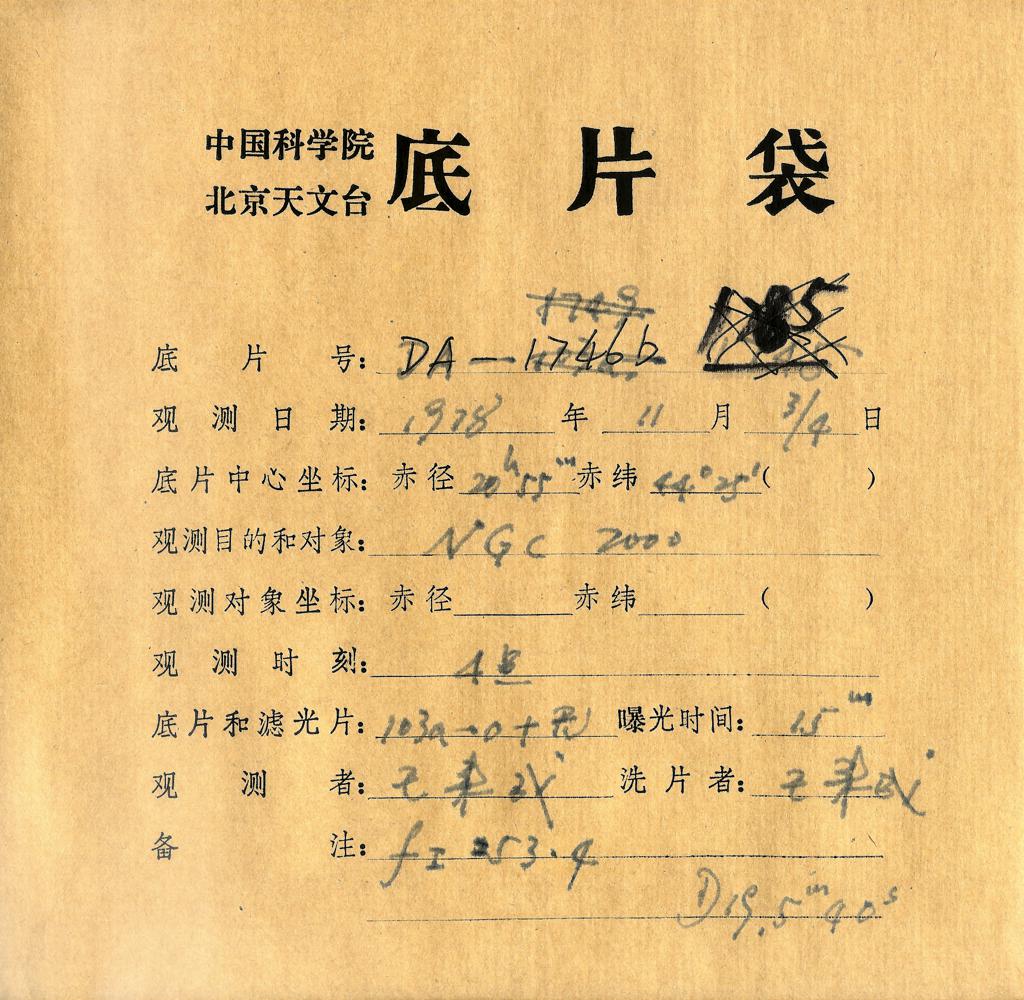 中国科学院
北京天文台
底片袋
1749
底片号: DA—1746b 1785
观测日期: 1978 年 11 月 3/4 日
底片中心坐标: 赤径 20h55m 赤纬 44°25′( )
观测目的和对象: NGC 2000
观测对象坐标: 赤径 赤纬 ( )
观测时刻:
底片和滤光片: 103a-O+ 曝光时间: 15m
观测者: 洗片者:
备注: fI 253.4
D19.5m40s